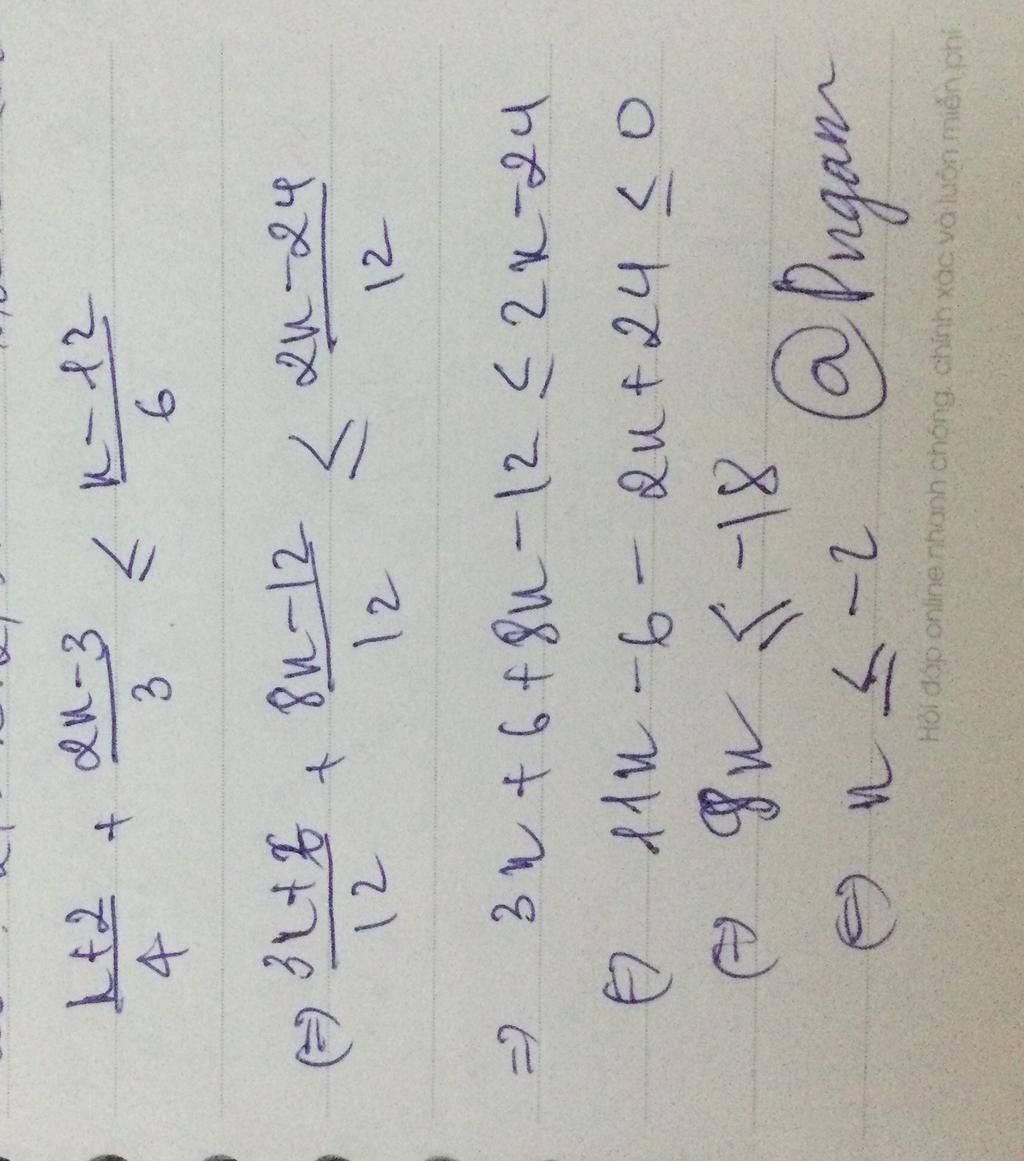 x+2/4 + 2x-3/3 ≤ x-12/6
(=) 3x+6/12 + 8x-12/12 ≤ 2x-24/12
=) 3x + 6 + 8x - 12 ≤ 2x - 24
(=) 11x - 6 - 2x + 24 ≤ 0
(=) 9x ≤ -18
(=) x ≤ -2
@Pngann
Hỏi đáp online nhanh chóng, chính xác và luôn miễn phí